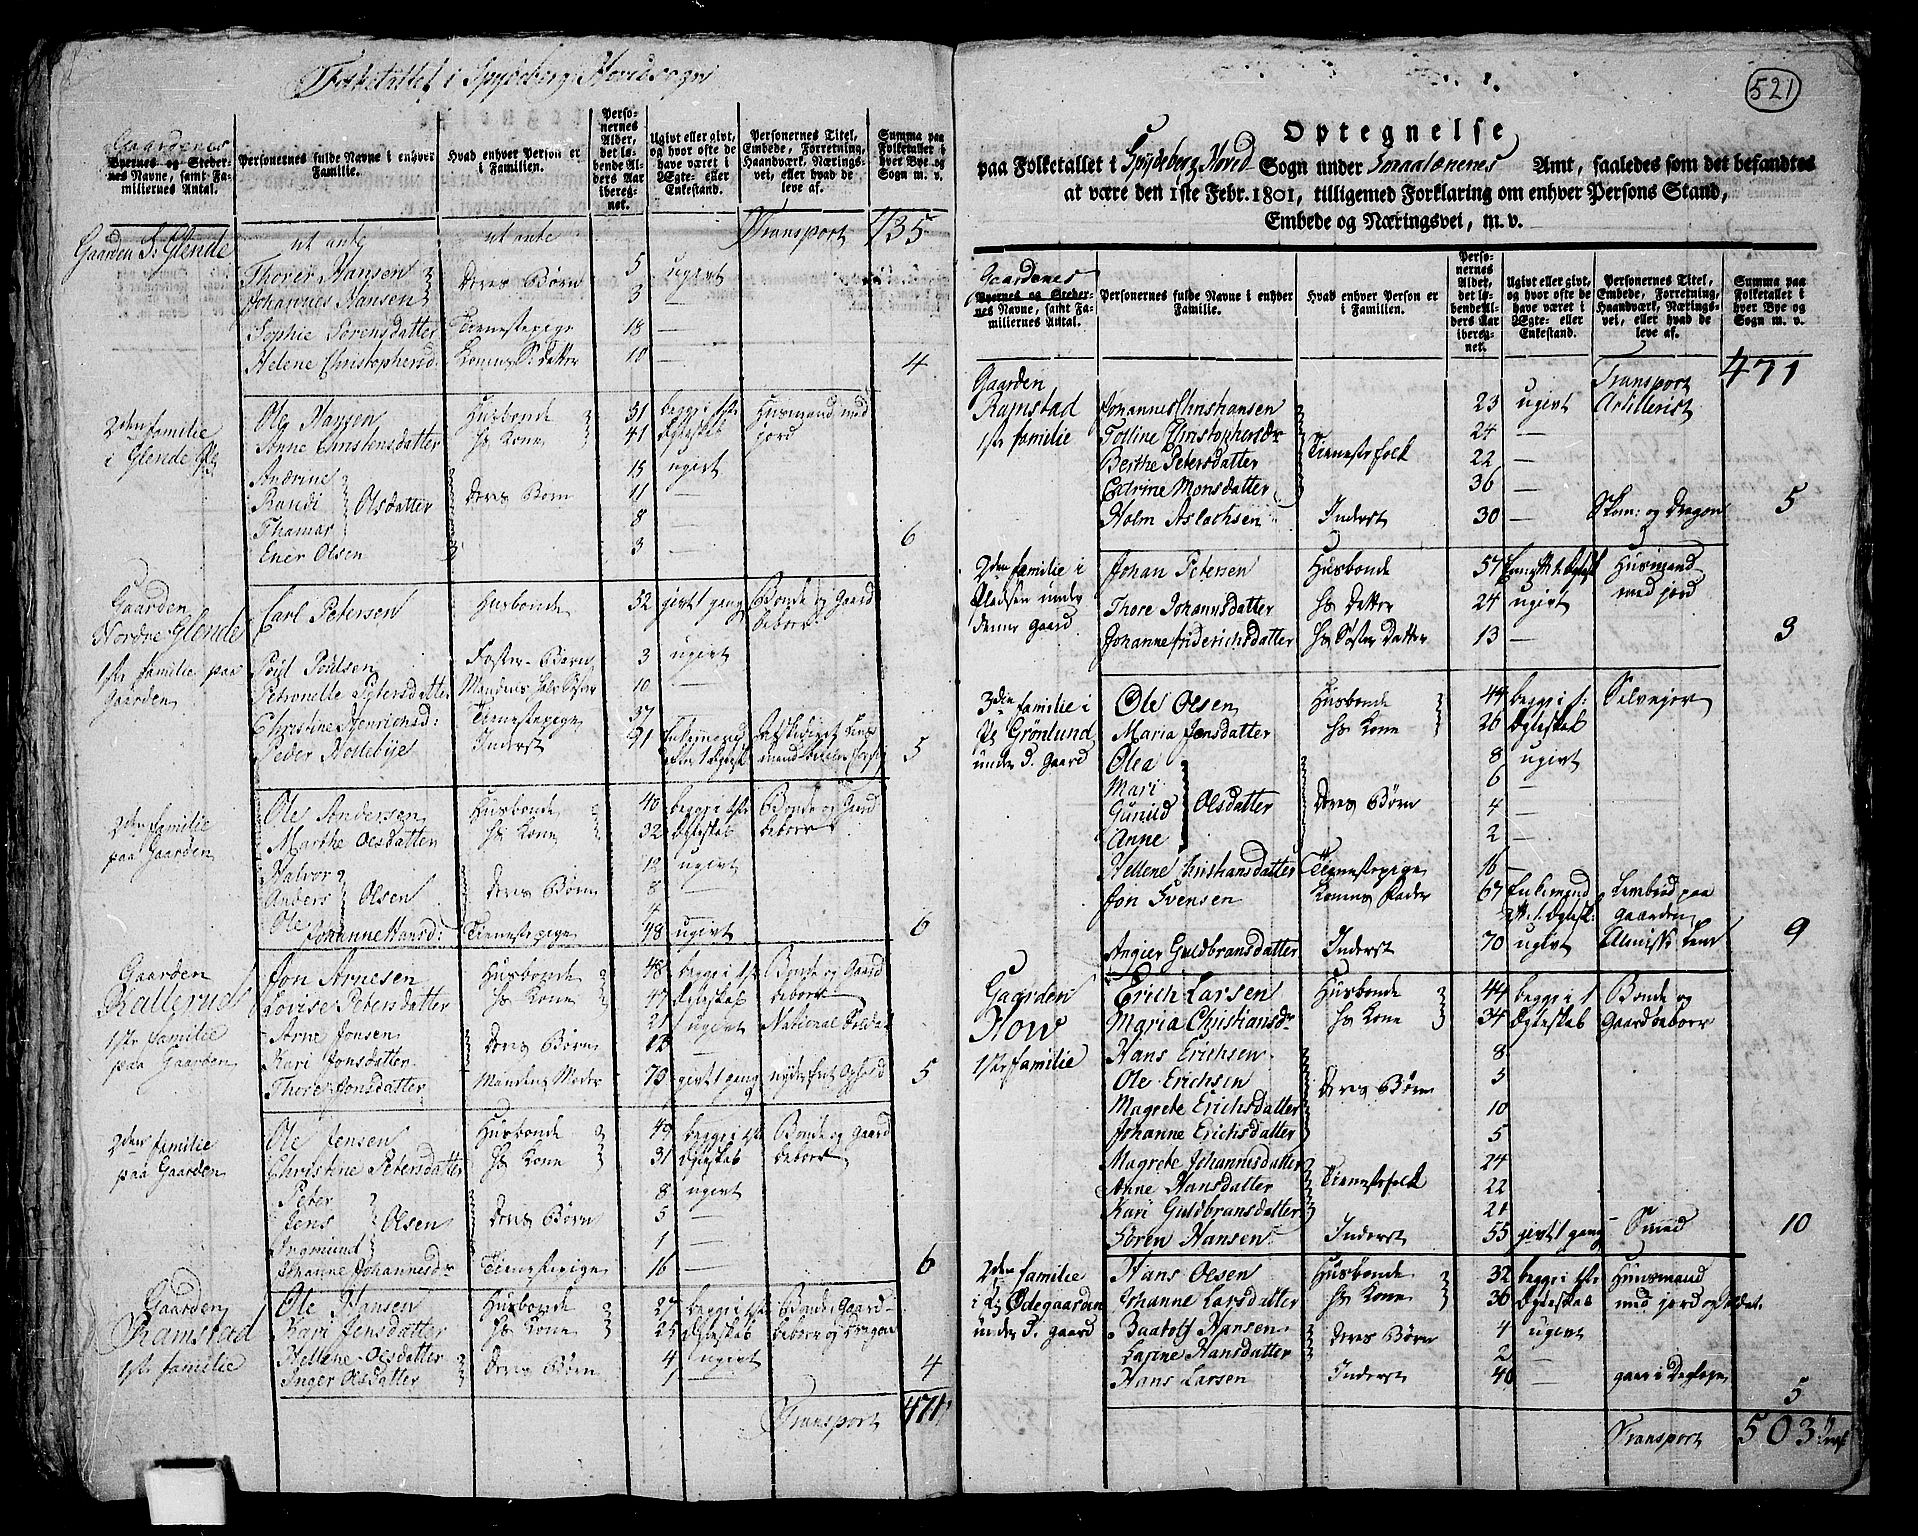 Folketallet i Spydeberg Hovedsogn
Gaardenes
Byernes og Stedernes Navne, samt Familiernes Antal.
Personernes fulde Navne i enhver Familie.
Hvad enhver Person er i Familien.
Personernes Alder, det løbende Alders Aar iberegnet.
Ugivt eller givt, og hvor ofte de have været i Ægte- eller Enkestand.
Personernes Titel, Embede, Forretning, Haandværk, Næringsvei, eller hvad de leve af.
Summa paa Folketallet i hver Bye og Sogn m. v.
Gaarden S: Glende ut ante ut ante Transport 435
Thorer Hansen Deres Børn 5 ugivt
Johannes Hansen 3
Sophie Sörensdatter Tienestepige 18 —
Helene Christophersd: Konens S: datter 10 — 4
2den familie i Glende
Ole Hansen Husbonde 51 begge i 1ste Husmand med
Anne Christensdatter Hs Kone 41 Egteskab jord
Andrine 15 ugivt
Randi Olsdatter Deres Børn 11 —
Thamar 8 —
Ener Olsen 3 — 6
Gaarden Nordre Glende
1ste familie paa Gaarden
Carl Petersen Husbonde 52 givt 1 gang Bonde og Gaard beboer
Poul Poulsen Foster-Barn 3 ugivt
Petronelle Petersdatter Mandens 10 —
Christine Henrichsd: Tienestepige 37
Peder Hollebÿe Inderst 41 Enkemand 5
2den familie paa Gaarden
Ole Andersen Husbonde 40 begge i 1ste Bonde og Gaard
Marthe Olsdatter Hs Kone 32 Egteskab beboer
Halvor 12 ugivt
Anders Olsen Deres Børn 8 —
Ole 4
Johanne Hansd: Tienestepige 48 ugivt 6
Gaarden Ratterud
1ste familie paa Gaarden
Jon Arnesen Husbonde 48 begge i 1ste Bonde og Gaard
Lovise Petersdatter Hs Kone 47 Egteskab beboer
Arne Jonsen Deres Børn 21 ugivt National Soldat
Kari Jonsdatter 12 —
Thore Jonsdatter Mandens Moder 73 givt 1 gang nyder frit Ophold 5
2den familie paa Gaarden
Ole Jensen Husbonde 49 begge i 1ste Bonde og Gaard
Christine Petersdatter Hs Kone 31 Egteskab beboer
Peter 8 ugivt
Jens Olsen Deres Børn 5 —
Ingmund 1 —
Johanne Johannesdr Tienestepige 16 — 6
Gaarden Ramstad
1ste familie
Ole Hansen Husbonde 27 begge i 1ste Bonde Gaard-
Kari Jensdatter Hs Kone 25 Egteskab beboer og Dragon
Hellene Olsdatter Deres Børn 4 ugivt
Inger Olsdatter 1 — 4
Transport 471
521
Optegnelse
paa Folketallet i Spydeberg Hoved- Sogn under Smaalænenes Amt, saaledes som det befandtes
at være den 1ste Febr. 1801, tilligemed Forklaring om enhver Persons Stand,
Embede og Næringsvei, m. v.
Gaardenes
Byernes og Stedernes Navne, samt Familiernes Antal.
Personernes fulde Navne i enhver Familie.
Hvad enhver Person er i Familien.
Personernes Alder, det løbende Alders Aar iberegnet.
Ugivt eller givt, og hvor ofte de have været i Ægte- eller Enkestand.
Personernes Titel, Embede, Forretning, Haandværk, Næringsvei, eller hvad de leve af.
Summa paa Folketallet i hver Bye og Sogn m. v.
Transport 471
Gaarden Ramstad
1ste familie
Johannes Christiansen 23 ugivt Artillerist
Tolline Christophersdr 24 —
Berthe Petersdatter Tienestefolk 22 —
Edrine Monsdatter 36 —
Holm Aslachsen Inderst 30 — og Dragon 5
2den familie i Pladsen under denne Gaard
Johan Petersen Husbonde 57 Husmand
Thore Johannsdatter Hs Datter 24 ugivt med jord
Johanne Friderichsdatter Hs Søster Datter 13 — 3
3die familie i Pl Grönlund under D. Gaard
Ole Olsen Husbonde 44 begge i 1. Selvejer
Maria Jonsdatter Hs Kone 26 Egteskab
Olea 8 ugivt
Mari 6 —
Gunild Olsdatter Deres Børn 4 —
Anne 2 —
Hellene Christiansdatter Tienestepige 16 —
Jon Svensen Konens Fader 67 Enkemand paa
Gaarden
Angier Guldbransdatter Inderst 70 ugivt Almisse Lem 9
Gaarden How
1ste familie
Erich Larsen Husbonde 44 begge i 1 Bonde og
Maria Christiansdr Hs Kone 34 Egteskab Gaardbeboer
Hans Erichsen 8
Ole Erichsen Deres Børn 3
Magrete Erichsdatter 10
Johanne Erichsdatter 5
Magrete Johannesdatter 24
Anne Hansdatter Tienestefolk 22
Kari Guldbransdatter 21
Sören Hansen Inderst 55 givt 1 gang Smed 10
2den familie i Pl Ödegaarden under D. gaard
Hans Olsen Husbonde 32 begge i 1ste Huusmand
Johanne Larsdatter Hs Kone 36 Egteskab med jord og
Baarolf Hansen Deres Børn 4 ugivt
Larine Hansdatter 2 —
Hans Larsen Inderst 40 — gaar i Dagleje 5
Transport 503